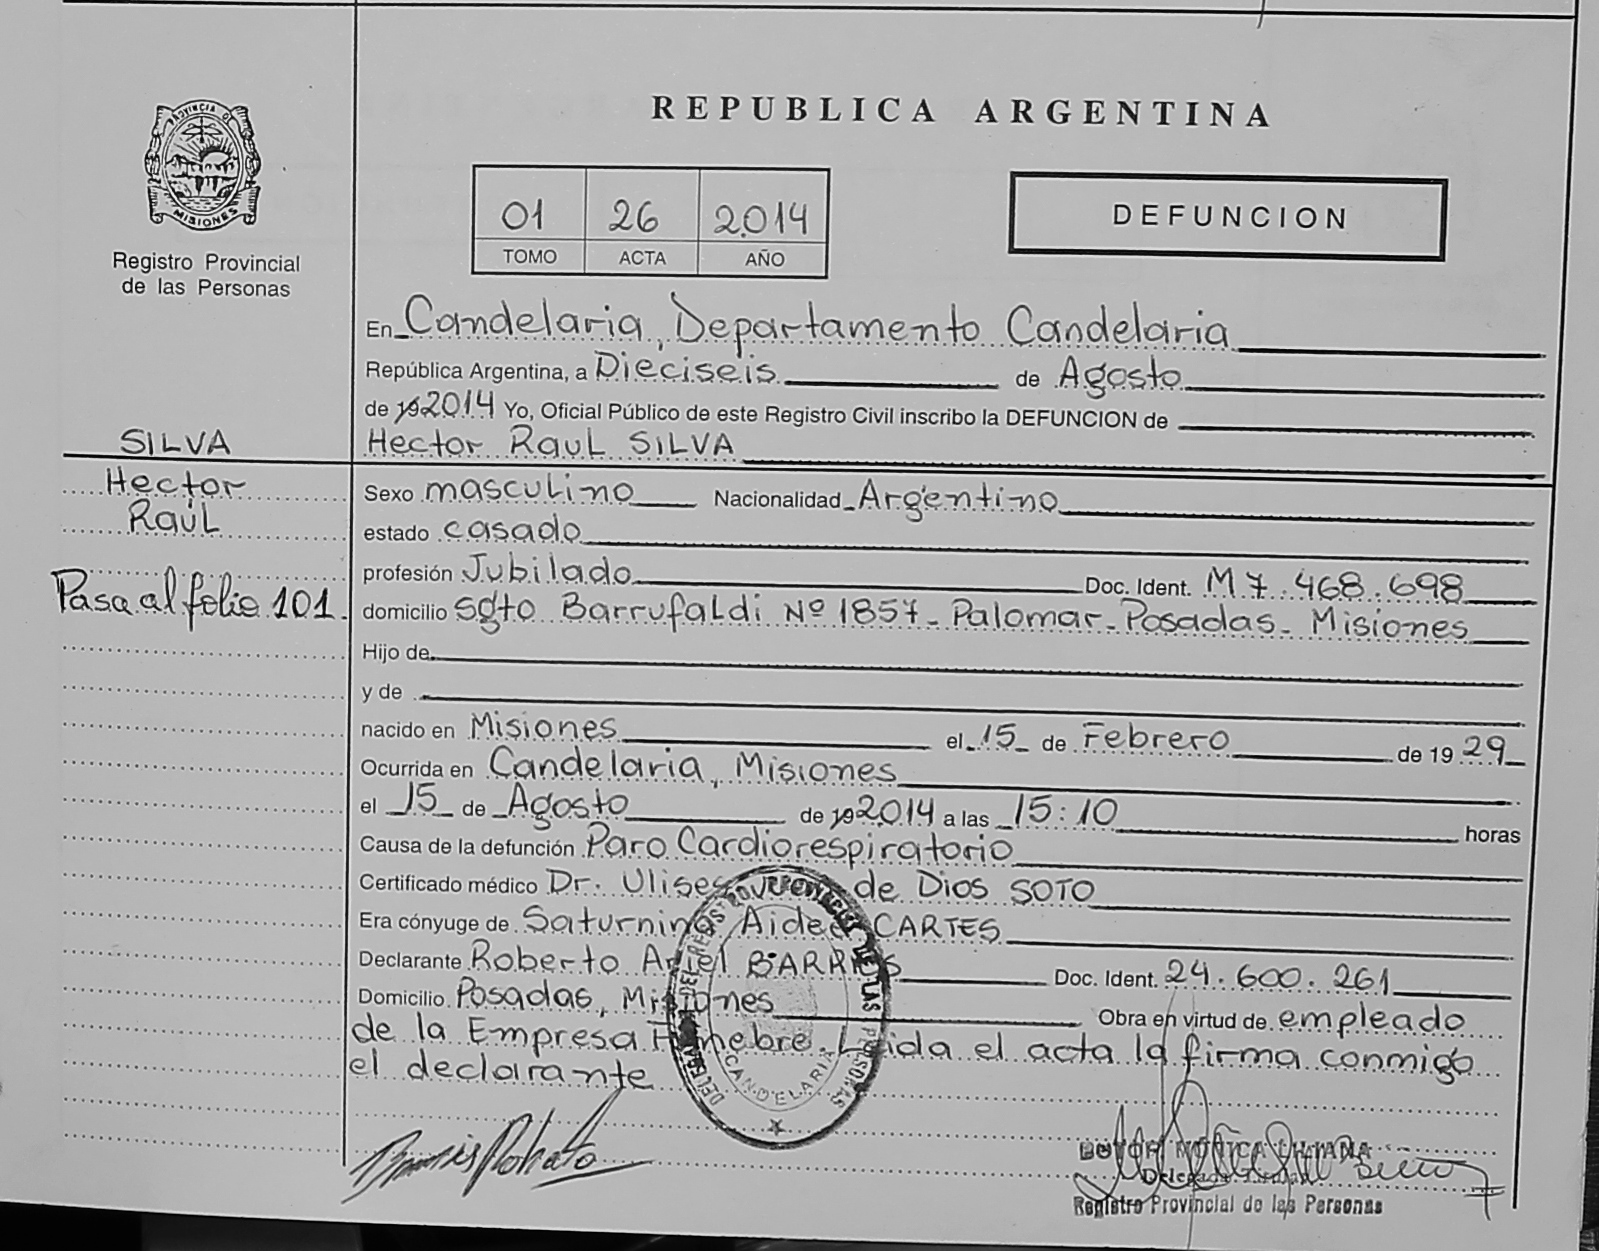 PROVINCIA DE
MISIONES
Registro Provincial
de las Personas
REPUBLICA ARGENTINA
01 26 2.014
TOMO ACTA AÑO
DEFUNCION
En Candelaria, Departamento Candelaria
República Argentina, a Dieciseis de Agosto
de 19 2014 Yo, Oficial Público de este Registro Civil inscribo la DEFUNCION de
SILVA
Hector Raul SILVA
Hector
Raúl
Sexo masculino Nacionalidad Argentino
estado casado
profesión Jubilado Doc. Ident. M 7.468.698
Pasa al folio 101
domicilio Sgto Barrufaldi Nº 1857 - Palomar - Posadas - Misiones
Hijo de
y de
nacido en Misiones el 15 de Febrero de 19 29
Ocurrida en Candelaria, Misiones
el 15 de Agosto de 19 2014 a las 15:10 horas
Causa de la defunción Paro Cardiorespiratorio
Certificado médico Dr. Ulises de Dios SOTO
Era cónyuge de Saturnina Aidee CARTES
Declarante Roberto Ariel BARRIOS Doc. Ident. 24.600.261
Domicilio Posadas, Misiones Obra en virtud de empleado
de la Empresa Fúnebre. Leida el acta la firma conmigo
el declarante
CANDELARIA
DE LAS PERSONAS
Registro Provincial de las Personas